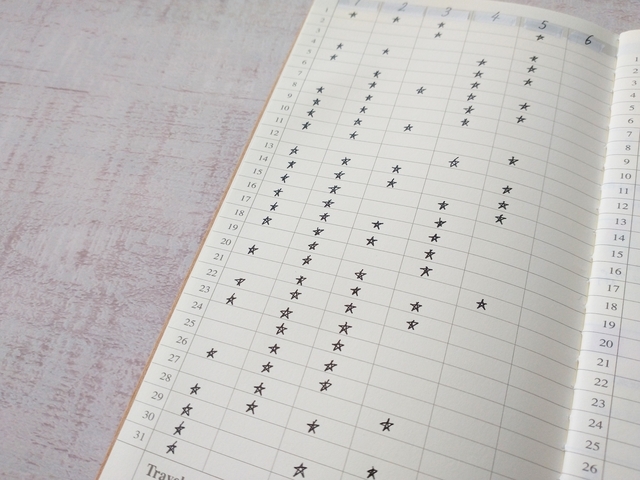 1 2 3 4 5 6
1
2
3
4
5
6
7
8
9
10
11
12
13
14
15
16
17
18
19
20
21
22
23
24
25
26
27
28
29
30
31
1
2
3
4
5
6
7
8
9
10
11
12
13
14
15
16
17
18
19
20
21
22
23
24
25
26